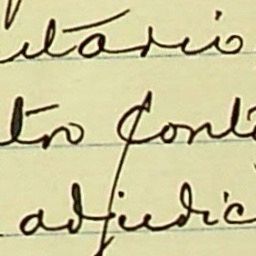 itário
tro Conti
adjudic